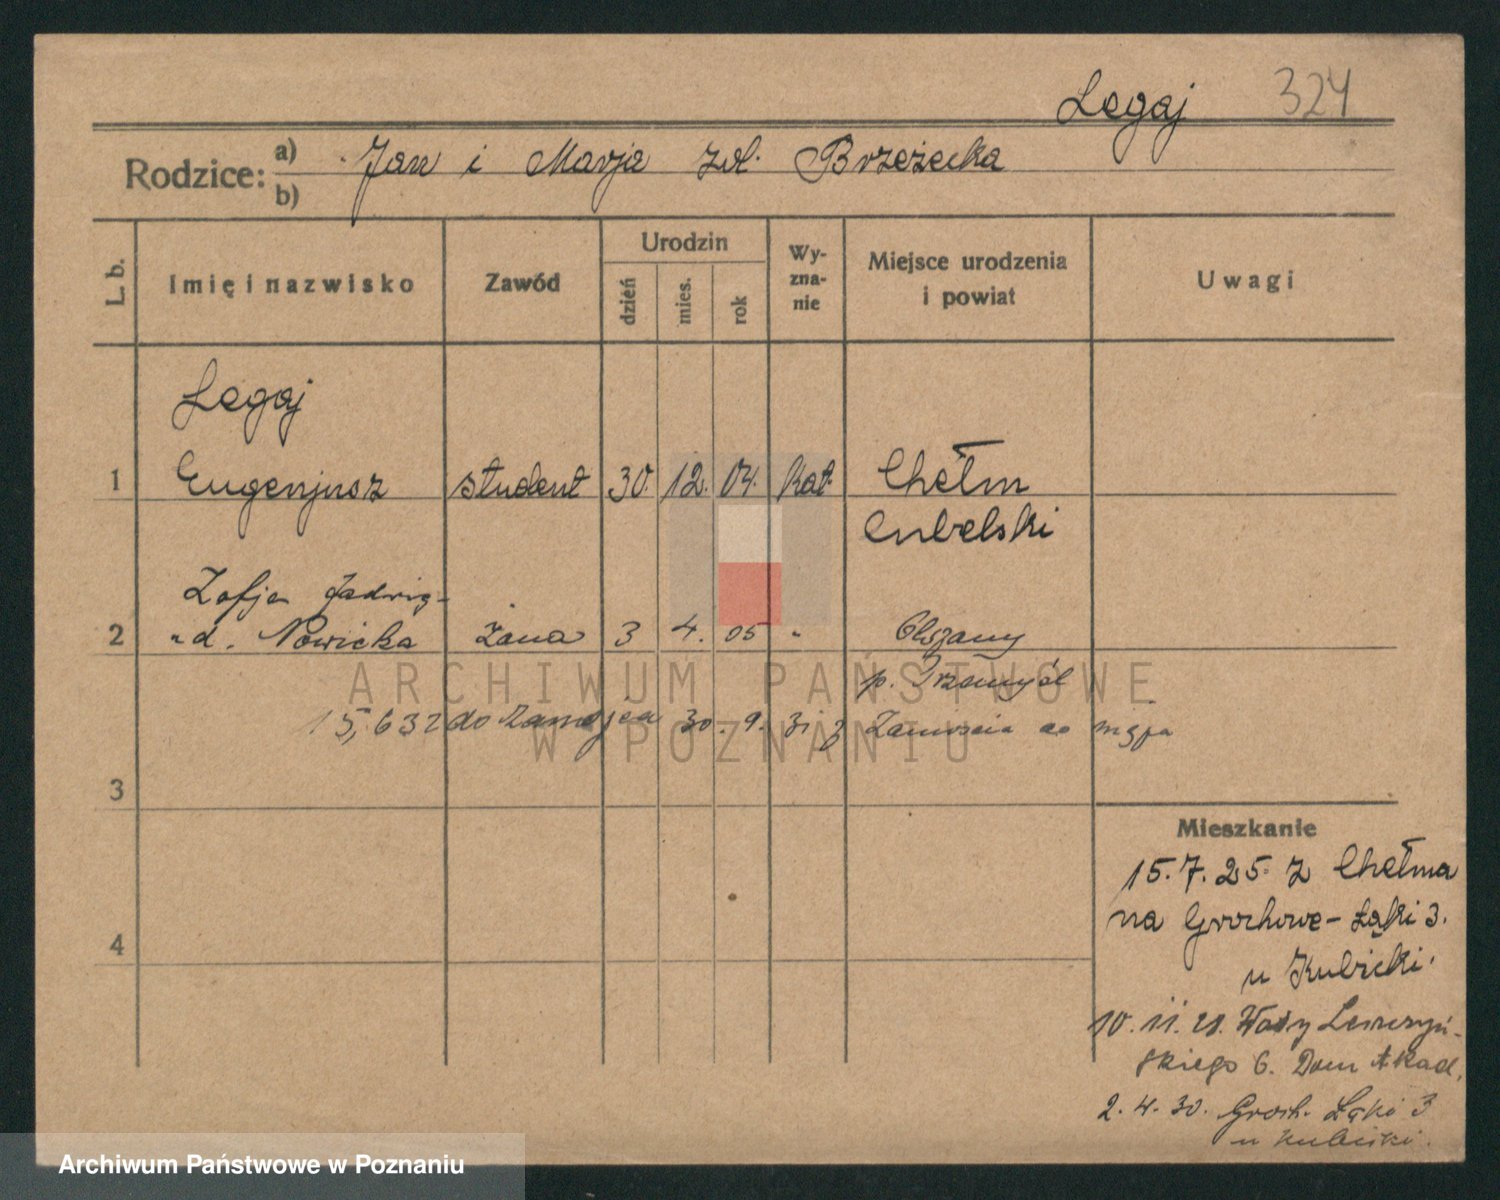 Legaj 324
Rodzice: a) Jan i Marja zd. Brzezicka
b)
L. b.
Imię i nazwisko
Zawód
Urodzin
dzień
mies.
rok
Wy-
zna-
nie
Miejsce urodzenia
i powiat
Uwagi
Legaj
1 Eugenjusz student 30. 12. 04. kat. Chełm
Lubelski
Zofja Jadwig-
2 zd. Nowicka żona 3 4. 05 " Olszany
p. Przemyśl
ARCHIWUM PAŃSTWOWE
W POZNANIU
15,632 do Zamojscia 30. 9. 31 z Zamościa do męża
3
Mieszkanie
15. 7. 25. z Chełma
na Grochowe-Łąki 3.
u Kubicki.
4
10. 11. 28. Wały Leszczyń-
skiego 6. Dom Akad.
2. 4. 30. Groch. Łąki 3
u Kubicki.
Archiwum Państwowe w Poznaniu